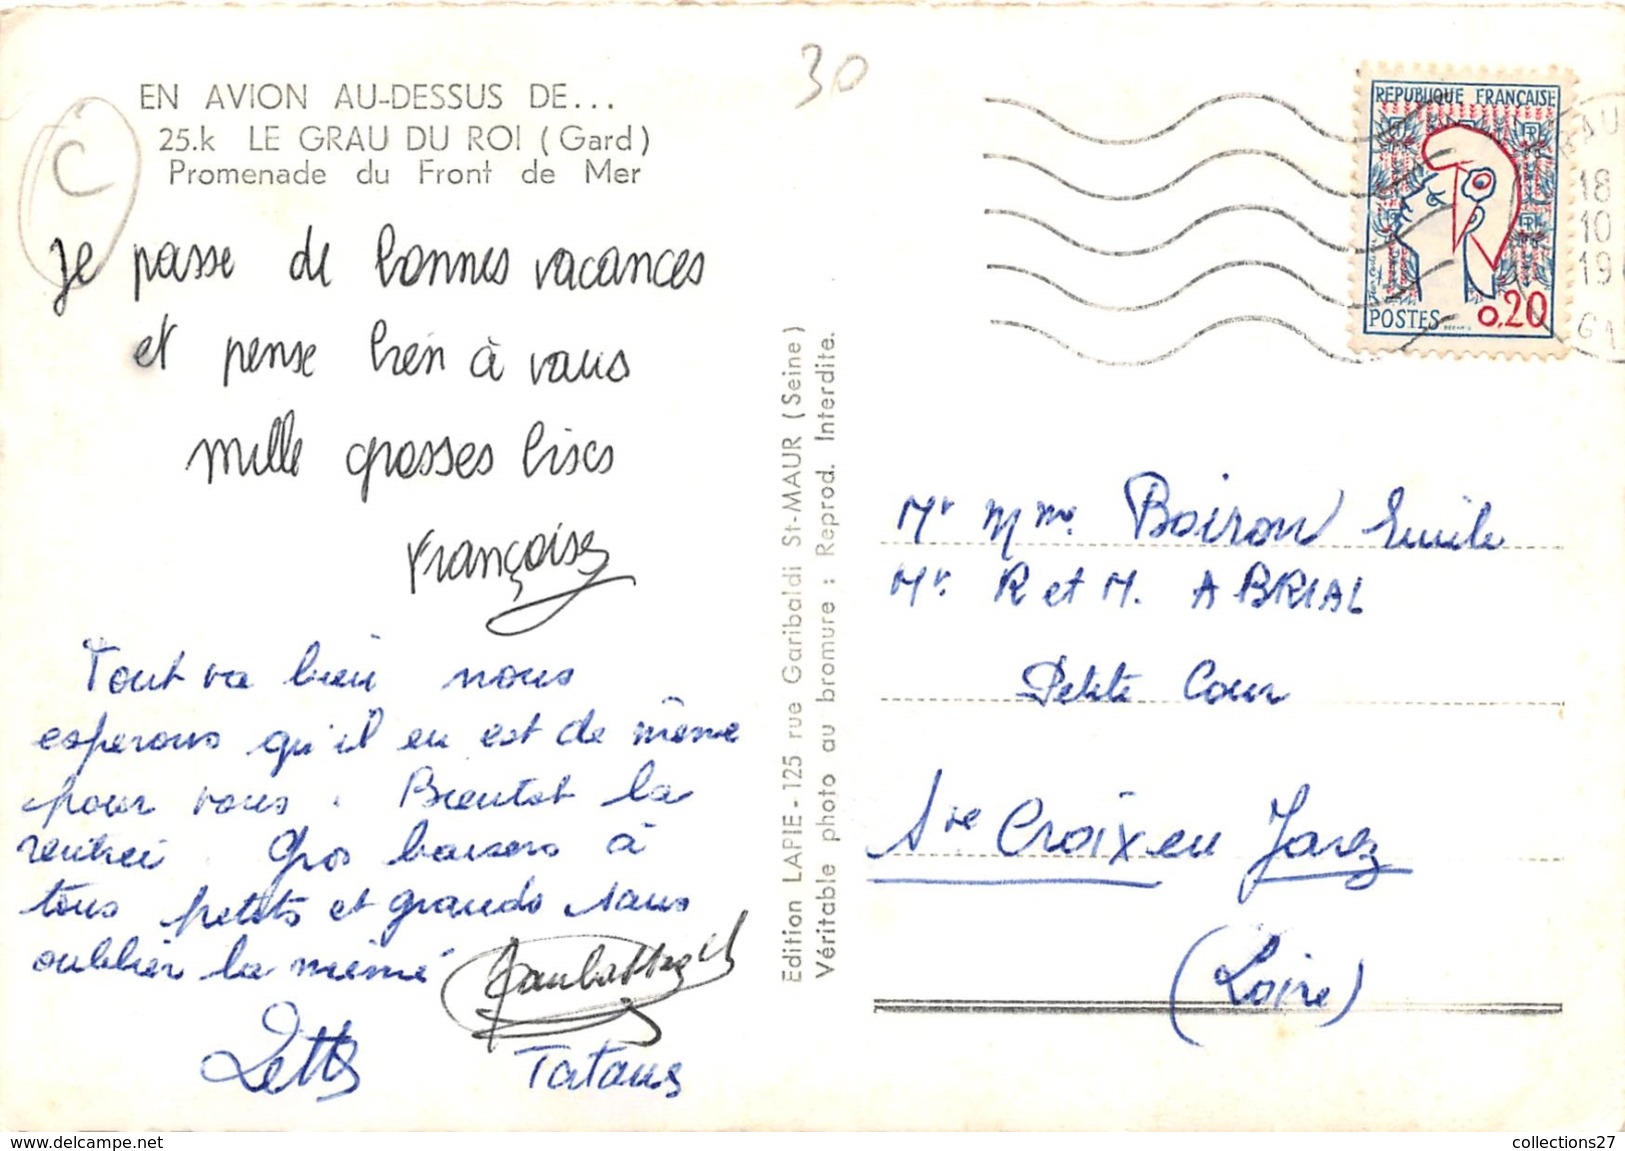 30
EN AVION AU-DESSUS DE...
25.k LE GRAU DU ROI (Gard)
Promenade du Front de Mer
C
Je passe de bonnes vacances
et pense bien à vous
mille grosses bises
Françoise
Tout va bien nous
esperons qu'il en est de même
pour vous. Bientot la
rentrée. Gros baisers à
tous petits et grands sans
oublier la mémé
Tatans
Edition LAPIE - 125 rue Garibaldi St-MAUR (Seine)
Véritable photo au bromure : Reprod. Interdite.
REPUBLIQUE FRANÇAISE
POSTES 0,20
18
10
19
Mr Mme Boiron Emile
Mr. R et M. ABRIAL
Petite Cour
Ste Croix en Jarez
(Loire)
collections27